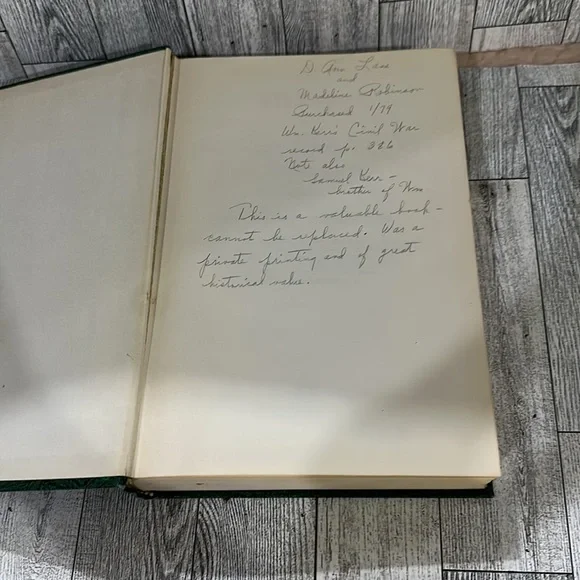 D. Ann Lace
and
Madeline Robinson
Purchased 1/79
Wm. Kerr's Civil War
record p. 386
Note also
Samuel Kerr -
brother of Wm
This is a valuable book -
cannot be replaced. Was a
private printing and of great
historical value.